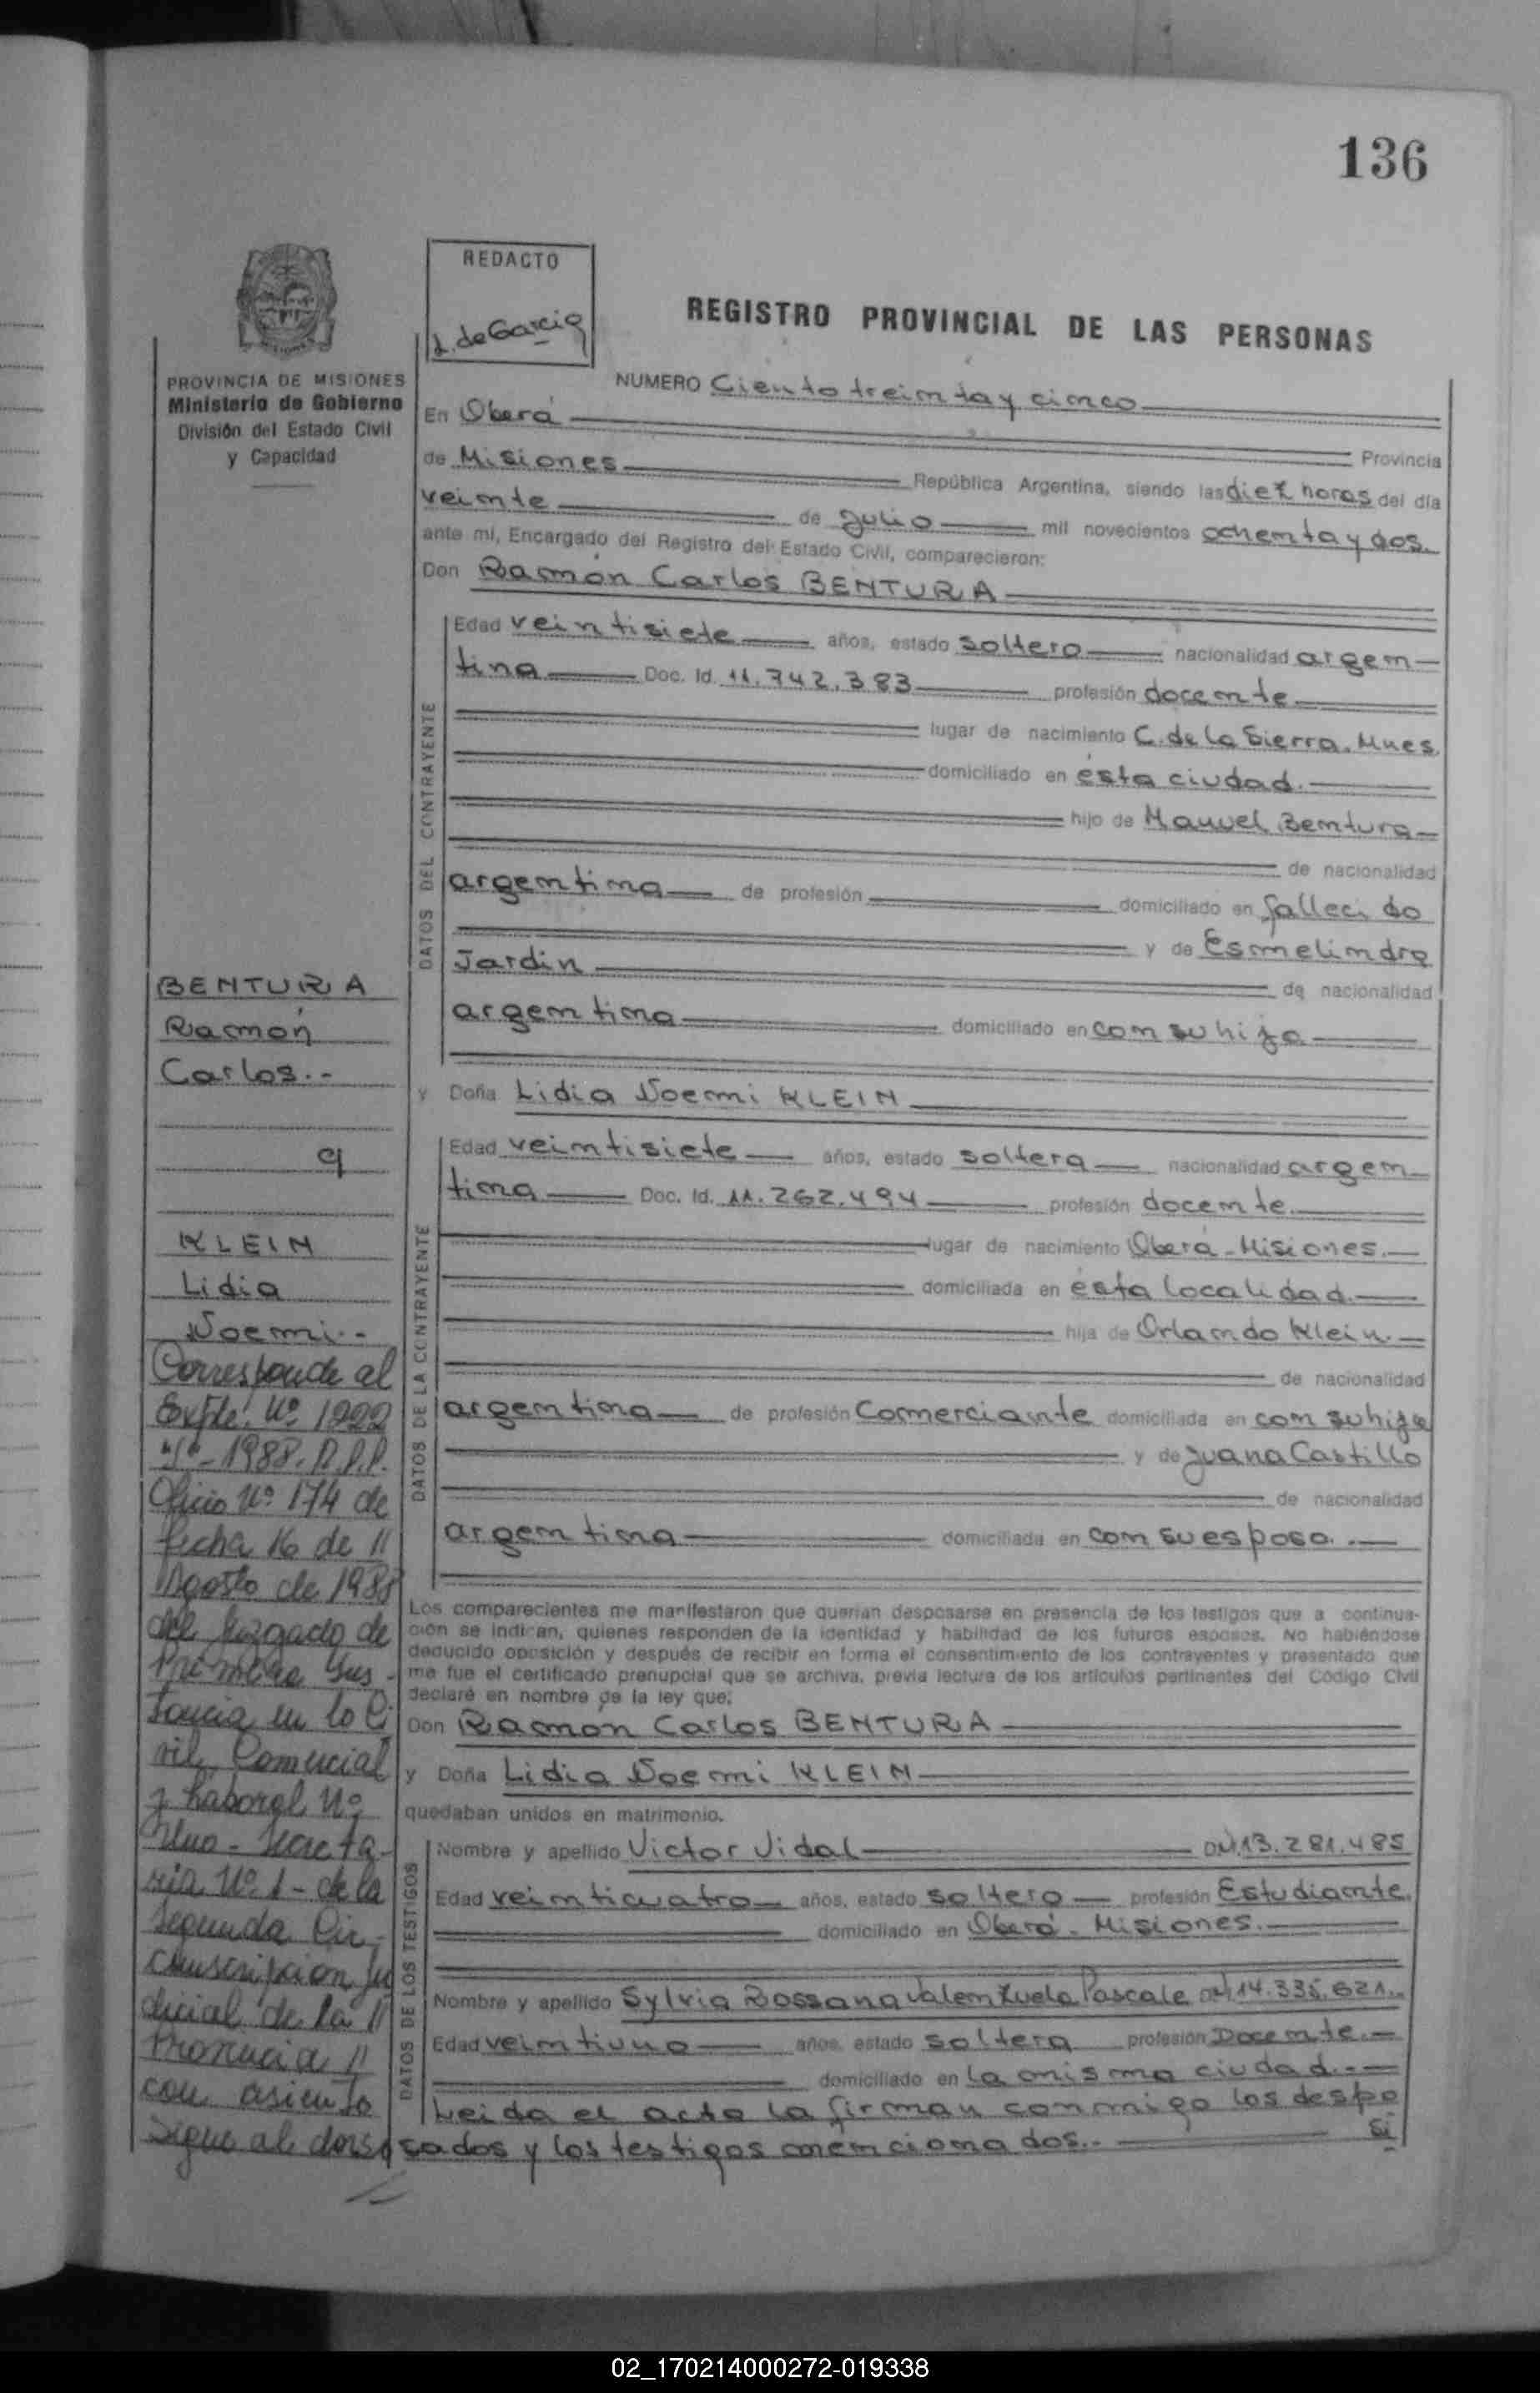 136
REDACTO
L. de Garcia
REGISTRO PROVINCIAL DE LAS PERSONAS
PROVINCIA DE MISIONES
Ministerio de Gobierno
División del Estado Civil
y Capacidad
NUMERO Ciento treinta y cinco
En Oberá
Provincia
de Misiones República Argentina, siendo las diez horas del día
veinte de Julio mil novecientos ochenta y dos.
ante mí, Encargado del Registro del Estado Civil, comparecieron:
Don Ramón Carlos BENTURA
DATOS DEL CONTRAYENTE
Edad veintisiete años, estado soltero nacionalidad argen
tina Doc. Id. 11.742.383 profesión docente
lugar de nacimiento C. de la Sierra. Mnes.
domiciliado en ésta ciudad.
hijo de Manuel Bentura
de nacionalidad
argentina de profesión domiciliado en fallecido
y de Esmelindra
Jardin
de nacionalidad
argentina domiciliado en con su hijo
y Doña Lidia Noemi KLEIN
DATOS DE LA CONTRAYENTE
Edad veintisiete años, estado soltera nacionalidad argen
tina Doc. Id. 11.262.494 profesión docente.
lugar de nacimiento Oberá - Misiones.
domiciliada en ésta localidad.
hija de Orlando Klein.
de nacionalidad
argentina de profesión Comerciante domiciliada en con su hija
y de Juana Castillo
de nacionalidad
argentina domiciliada en con su esposo.
Los comparecientes me manifestaron que querían desposarse en presencia de los testigos que a continua-
ción se indican, quienes responden de la identidad y habilidad de los futuros esposos. No habiéndose
deducido oposición y después de recibir en forma el consentimiento de los contrayentes y presentado que
me fue el certificado prenupcial que se archiva, previa lectura de los artículos pertinentes del Código Civil
declaré en nombre de la ley que:
Don Ramón Carlos BENTURA
y Doña Lidia Noemi KLEIN
quedaban unidos en matrimonio.
DATOS DE LOS TESTIGOS
Nombre y apellido Victor Vidal DNI 13.281.485
Edad veinticuatro años, estado soltero profesión Estudiante.
domiciliado en Oberá - Misiones.
Nombre y apellido Sylvia Rossana Valenzuela Pascale DNI 14.335.621.
Edad veintiuno años, estado soltera profesión Docente.
domiciliado en la misma ciudad.
Leida el acta la firman conmigo los despo
sados y los testigos mencionados.. Si
BENTURA
Ramón
Carlos.-
q
KLEIN
Lidia
Noemi.-
Corresponde al
Expte. Nº 1922
1988. R.P.P.
Oficio Nº 174 de
fecha 16 de //
Agosto de 1988
del Juzgado de
Primera Ins-
tancia en lo Ci
vil, Comercial
y Laboral Nº
Uno - Secreta-
ria Nº 1 - de la
Segunda Cir-
cunscripcion Ju
dicial de la //
Provincia //
con asiento
Sigue al dorso
02_170214000272-019338